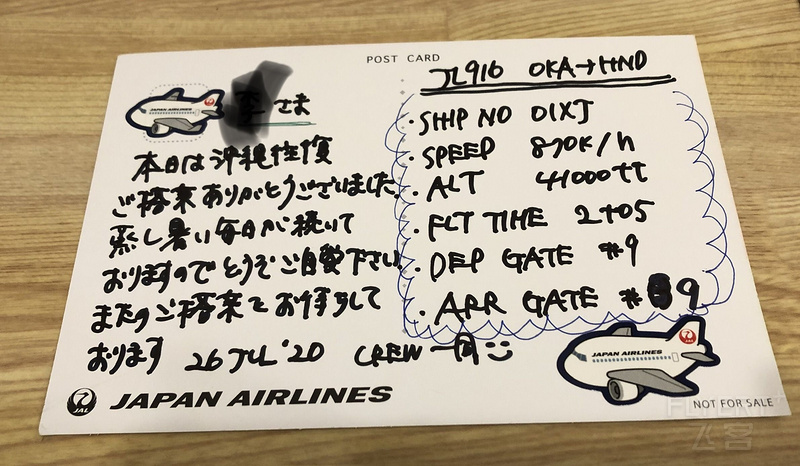 POST CARD
JAPAN AIRLINES
さま
本日は沖縄往復
ご搭乗ありがとうございました。
蒸し暑い毎日が続いて
おりますのでどうぞご自愛下さい。
またのご搭乗をお待ちして
おります 26 JUL '20 CREW一同
JAL JAPAN AIRLINES
JL916 OKA→HND
・SHIP NO 01XJ
・SPEED 870K/h
・ALT 41000ft
・FLT TIME 2+05
・DEP GATE #9
・ARR GATE #9
JAPAN AIRLINES
NOT FOR SALE